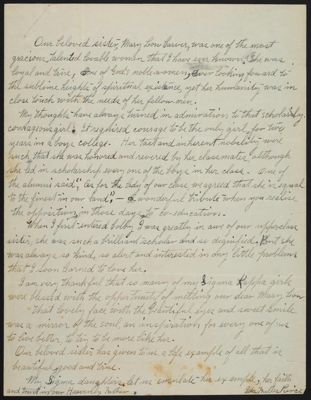 Our beloved sister, Mary Low Carver, was one of the most
gracious, talented lovable women that I have ever known. She was
loyal and true, one of God's noble women, ever looking forward to
the sublime heights of spiritual existence, yet her humanity was in
close touch with the needs of her fellow men.
My thoughts have always turned in admiration to that scholarly,
courageous girl. It required courage to be the only girl, for two
years in a boys' college. Her tact and inherent nobility were
such that she was honored and revered by her classmates, although
she led in scholarship every one of the boys in her class. One of
the alumni said, "As for the lady of our class we agreed that she is equal
to the finest in our land," – a wonderful tribute when you realize
the opposition, in those days, to co-education.
When I first entered Colby, I was greatly in awe of our upperclass
sister, she was such a brilliant scholar and so dignified. But she
was always so kind, so alert and interested in my little problems
that I soon learned to love her.
I am very thankful that so many of my Sigma Kappa girls
were blessed with the opportunity of meeting our dear Mary Low.
That lovely face with the truthful eyes and sweet smile
was a mirror of the soul, an inspiration for every one of us
to live better, to try to be more like her.
Our beloved sister has given to us a life example of all that is
beautiful, good and true.
My Sigma daughters, let us emulate her example, her faith
and trust in our Heavenly Father.
Fuller Pierce